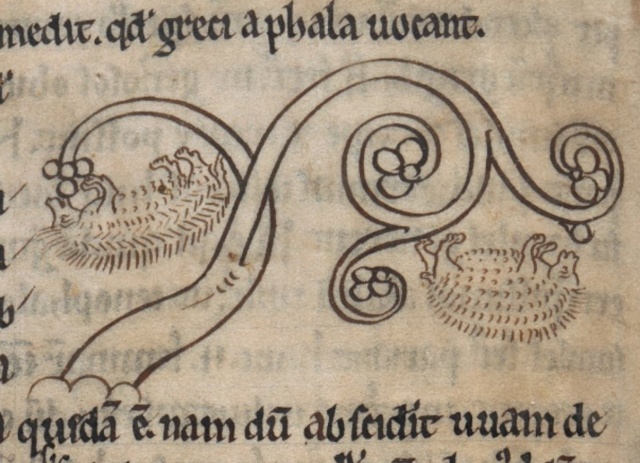 medit. qđ greci aphala uocant.
quidā ē. nam dū abscidit uuam de